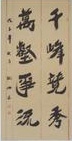 千峰競秀
萬壑爭流